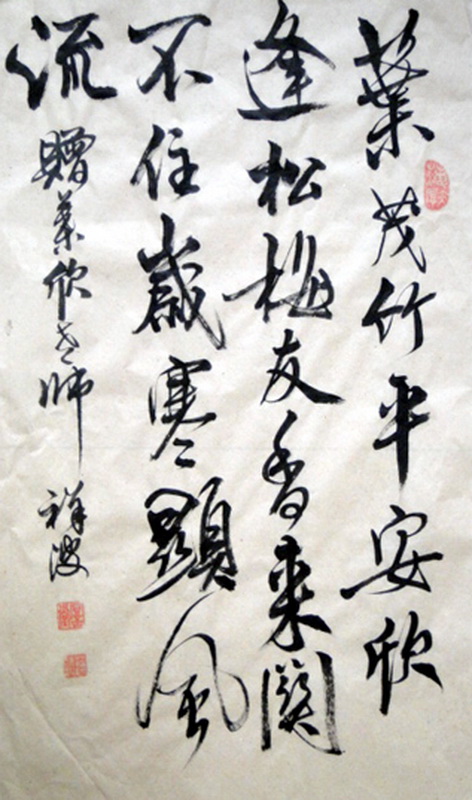 葉茂竹平安欣
逢松梅友香来關
不住歲寒顯風
流
贈葉欣老師
祥波